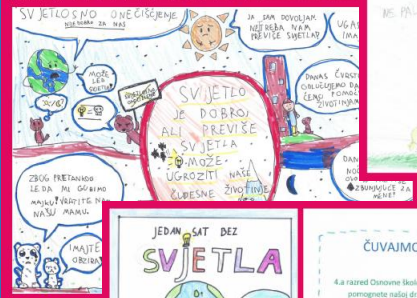 SVJETLOSNO ONEČIŠĆENJE
NIJE DOBRO ZA NAS
JA SAM DOVOLJAN
NETREBA NAM
PREVIŠE SVJETLA?
UGA
IMA
NE PAL
MOŽE
LED
SVJETLA
SVJETLO
JE DOBRO
ALI PREVIŠE
SVJETLA
MOŽE
UGROZITI NAŠE
ČUDESNE ŽIVOTINJE
DANAS ČVRSTO
ODLUČUJEMO DA
ĆEMO POMOĆ
ŽIVOTINJAM
DAN
NOĆ
ZBUNJUJUĆE ZA
MENE!
ZBOG PRETANKOG
LEDA MI GUBIMO
MAJKU! VRATITE NAM
NAŠU MAMU.
IMAJTE
OBZIRA
JEDAN SAT BEZ
SVJETLA
ČUVAJMO
4.a razred Osnovne škol
pomognete našoj dr